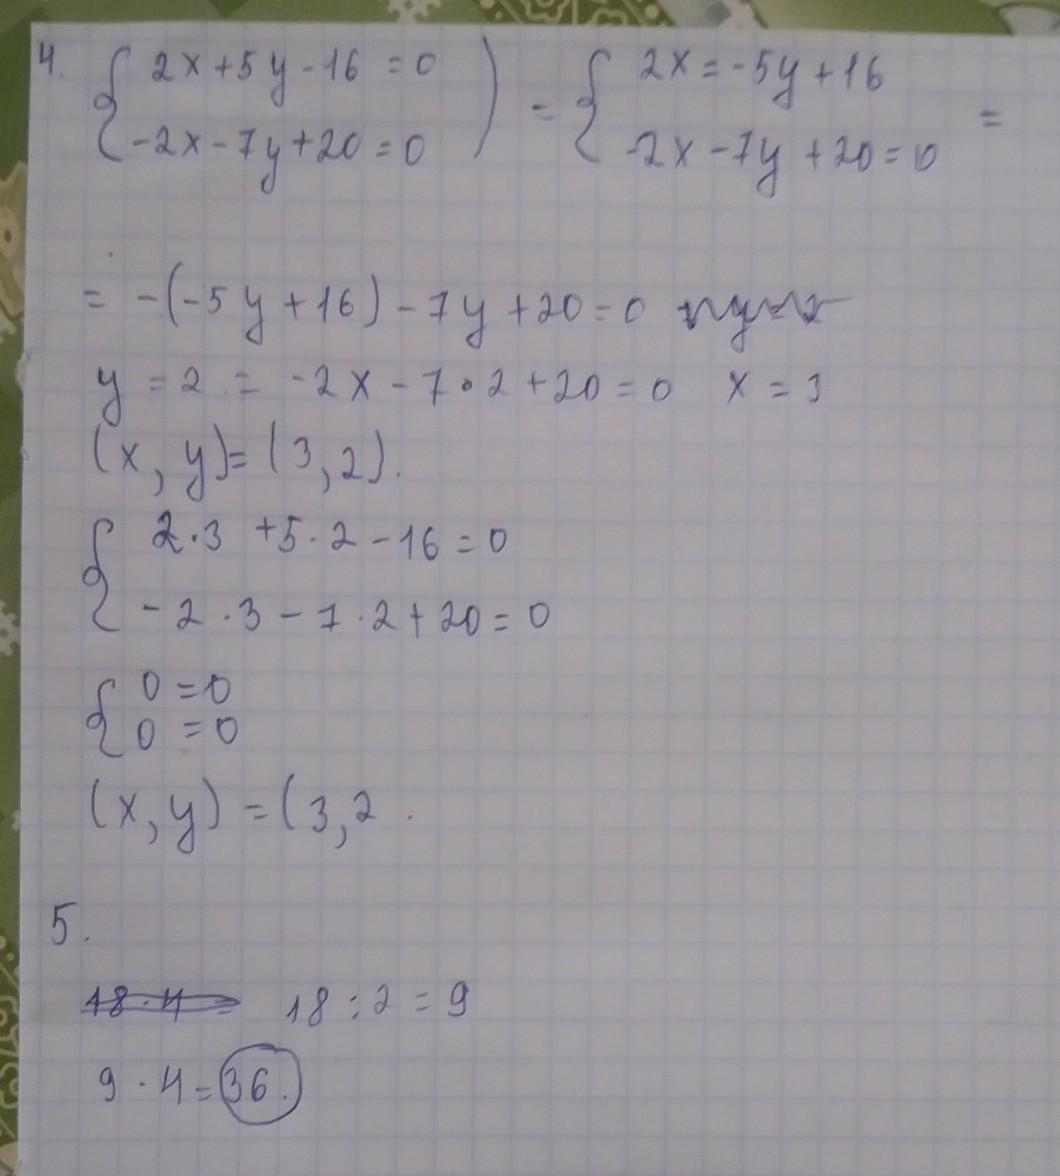 4. { 2x+5y-16=0 ) = { 2x=-5y+16 =
-2x-7y+20=0 -2x-7y+20=0
= -(-5y+16)-7y+20=0
y=2 = -2x-7·2+20=0 x=3
(x,y)=(3,2).
{ 2·3 +5·2-16=0
-2·3-7·2+20=0
{ 0=0
0=0
(x,y)=(3,2 .
5.
18·4= 18:2=9
9·4=36.